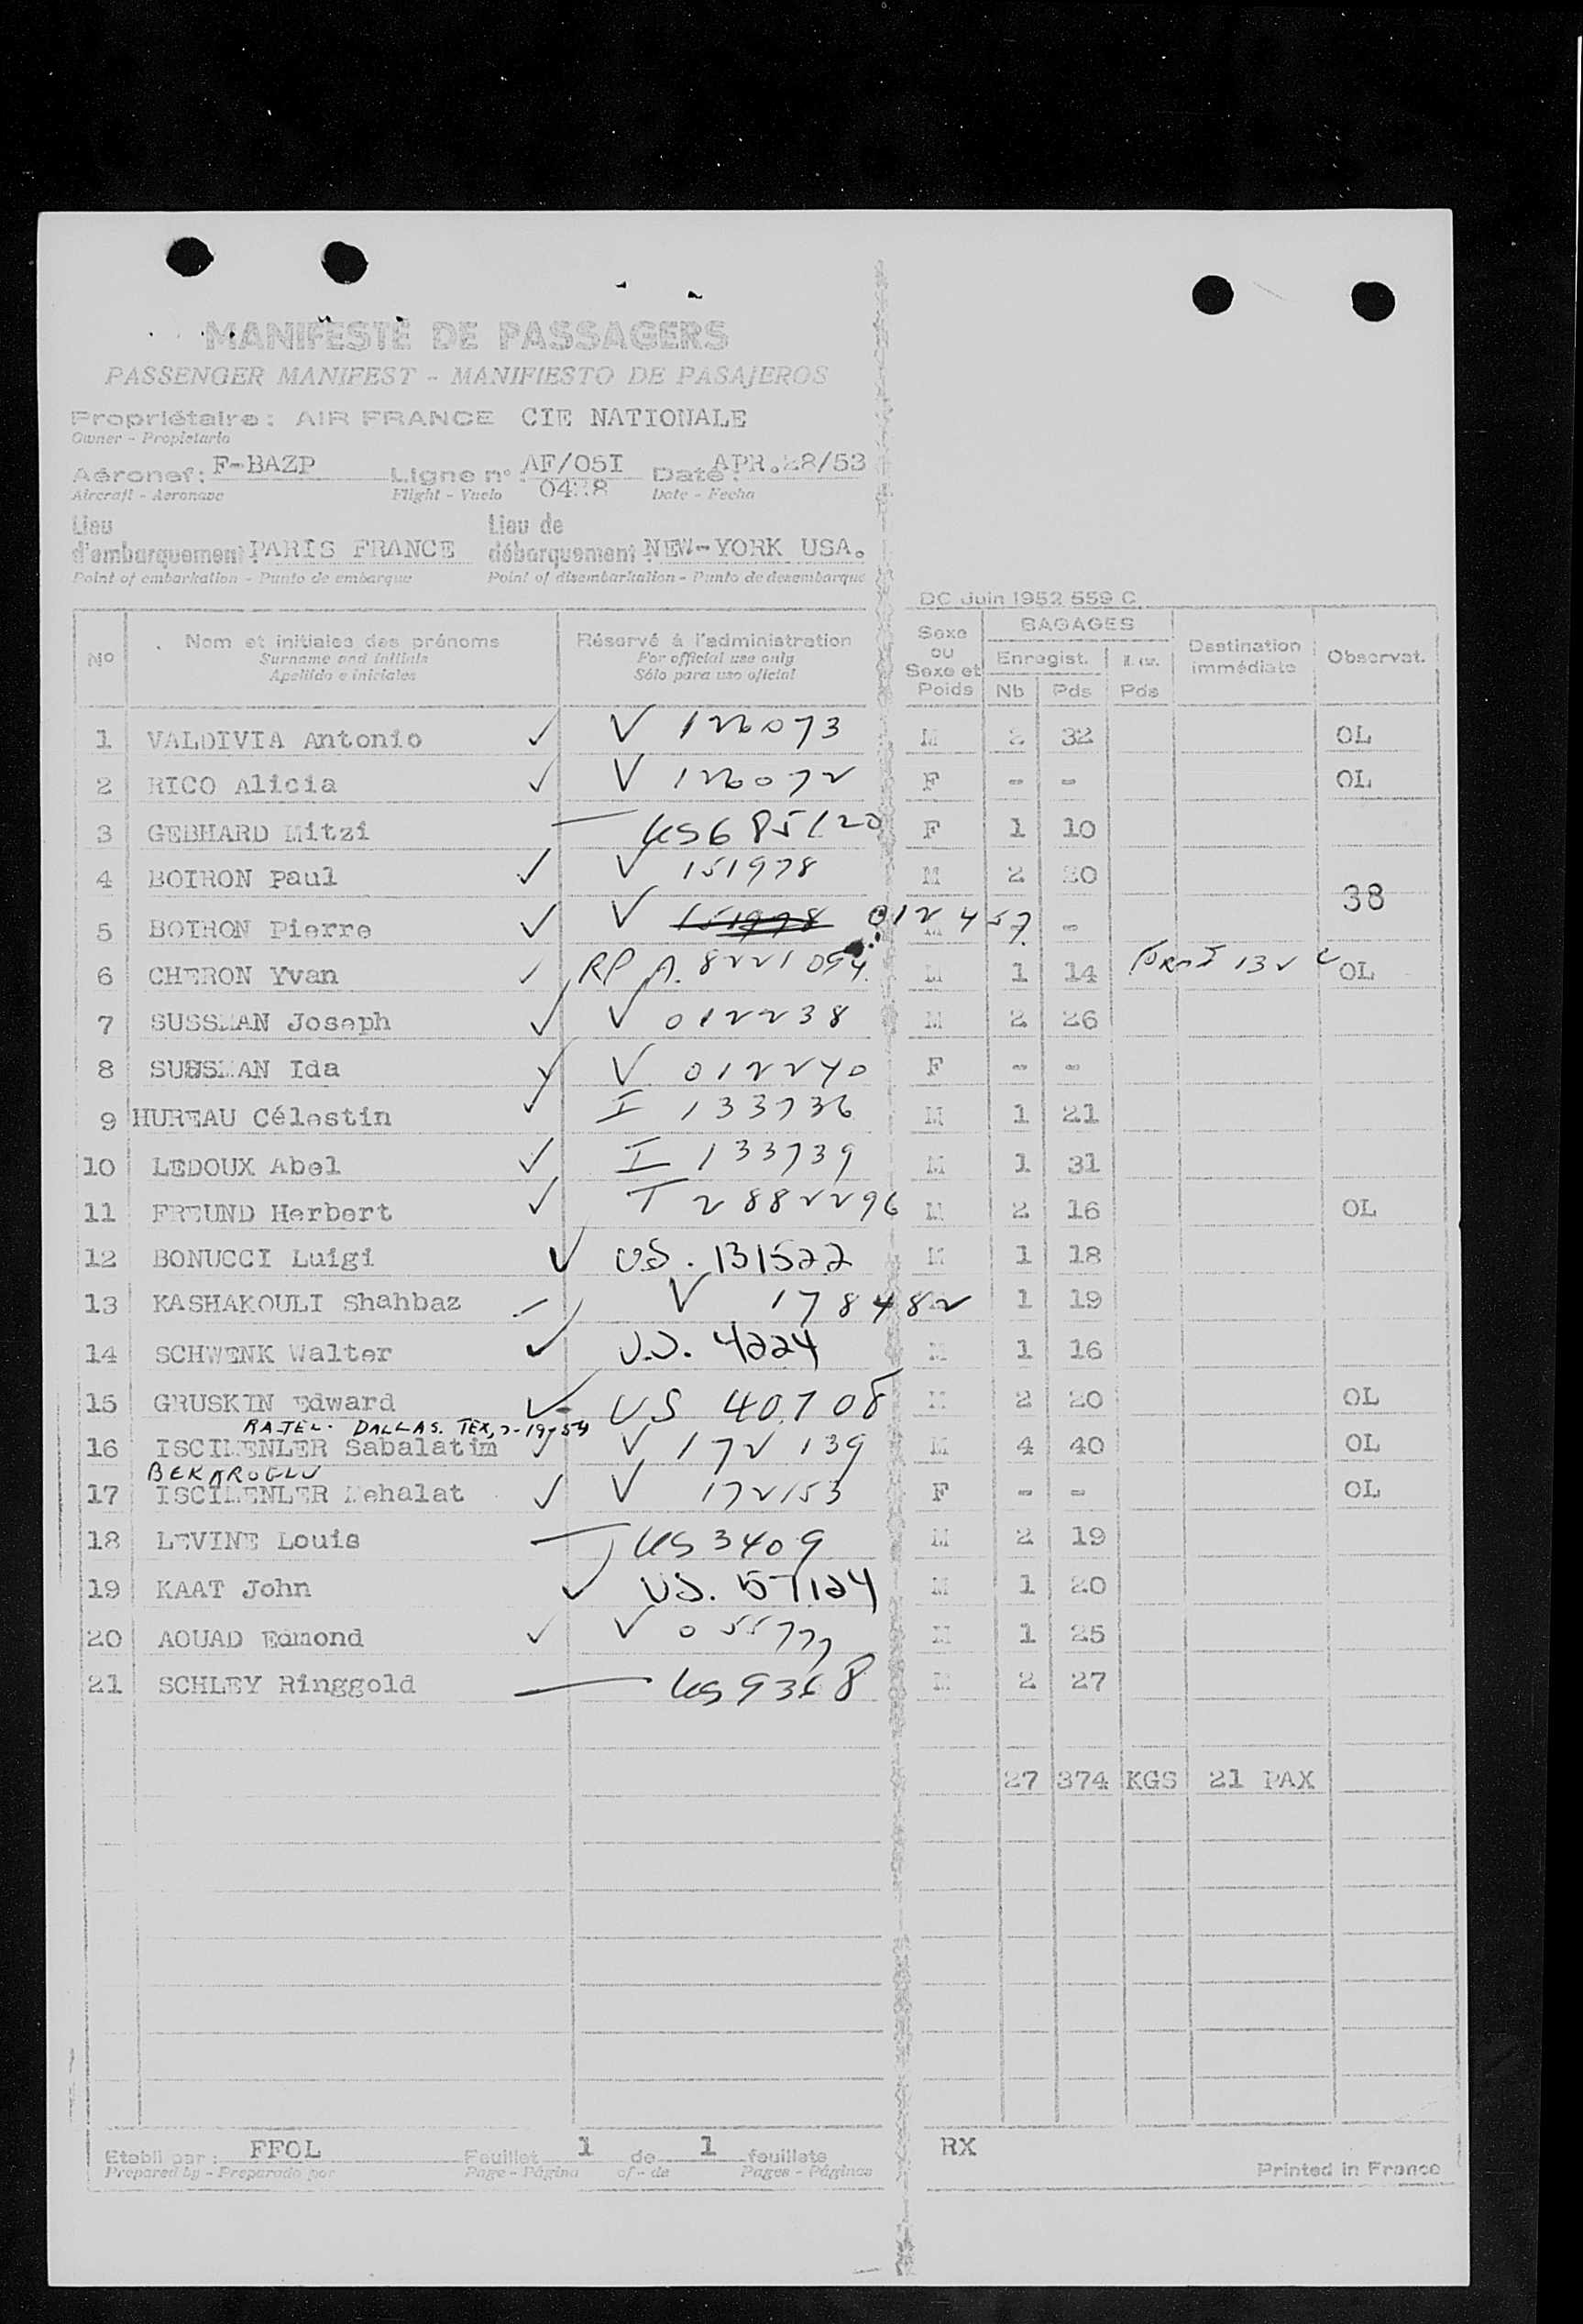 MANIFESTE DE PASSAGERS
PASSENGER MANIFEST - MANIFIESTO DE PASAJEROS
Propriétaire: AIR FRANCE CIE NATIONALE
Owner - Propietario
Aéronef: F-BAZP Ligne n° AF/051 Date: APR.28/53
Aircraft - Aeronave Flight - Vuelo 0428 Date - Fecha
Lieu Lieu de
d'embarquement PARIS FRANCE débarquement NEW-YORK USA.
Point of embarkation - Punto de embarque Point of disembarkation - Punto de desembarque
DC Juin 1952 559 C
Nº Nom et initiales des prénoms Réservé à l'administration Sexe ou Sexe et Poids BAGAGES Destination immédiate Observat.
Surname and initials For official use only Enregist.
Apellido e iniciales Sólo para uso oficial Nb Pds Pds
1 VALDIVIA Antonio ✓ V 126073 M 2 32 OL
2 RICO Alicia ✓ V 126072 F - - OL
3 GEBHARD Mitzi — US685120 F 1 10
4 BOIRON Paul ✓ V 151978 M 2 20
38
5 BOIRON Pierre ✓ V 151978 012457 M - -
6 CHERON Yvan ✓ RP A. 8221094 M 1 14 OL
7 SUSSMAN Joseph ✓ V 012238 M 2 26
8 SUSSMAN Ida ✓ V 012240 F - -
9 HUREAU Célestin ✓ I 133736 M 1 21
10 LEDOUX Abel ✓ I 133739 M 1 31
11 FREUND Herbert ✓ T 2882296 M 2 16 OL
12 BONUCCI Luigi ✓ US. 131522 M 1 18
13 KASHAKOULI Shahbaz — V 178482 1 19
14 SCHWENK Walter ✓ U.S. 4224 M 1 16
15 GRUSKIN Edward ✓ US 40708 M 2 20 OL
DALLAS. TEX,
16 ISCIMENLER Sabalatim ✓ V 172139 M 4 40 OL
BEKAROGLU
17 ISCIMENLER Mehalat ✓ V 172153 F - - OL
18 LEVINE Louis — US3409 M 2 19
19 KAAT John ✓ US. 57124 M 1 20
20 AOUAD Edmond ✓ V 055777 M 1 25
21 SCHLEY Ringgold — US9368 M 2 27
27 374 KGS 21 PAX
Etabli par: FFOL Feuillet 1 de 1 feuillets RX
Prepared by - Preparado por Page - Página of - de Pages - Páginas Printed in France